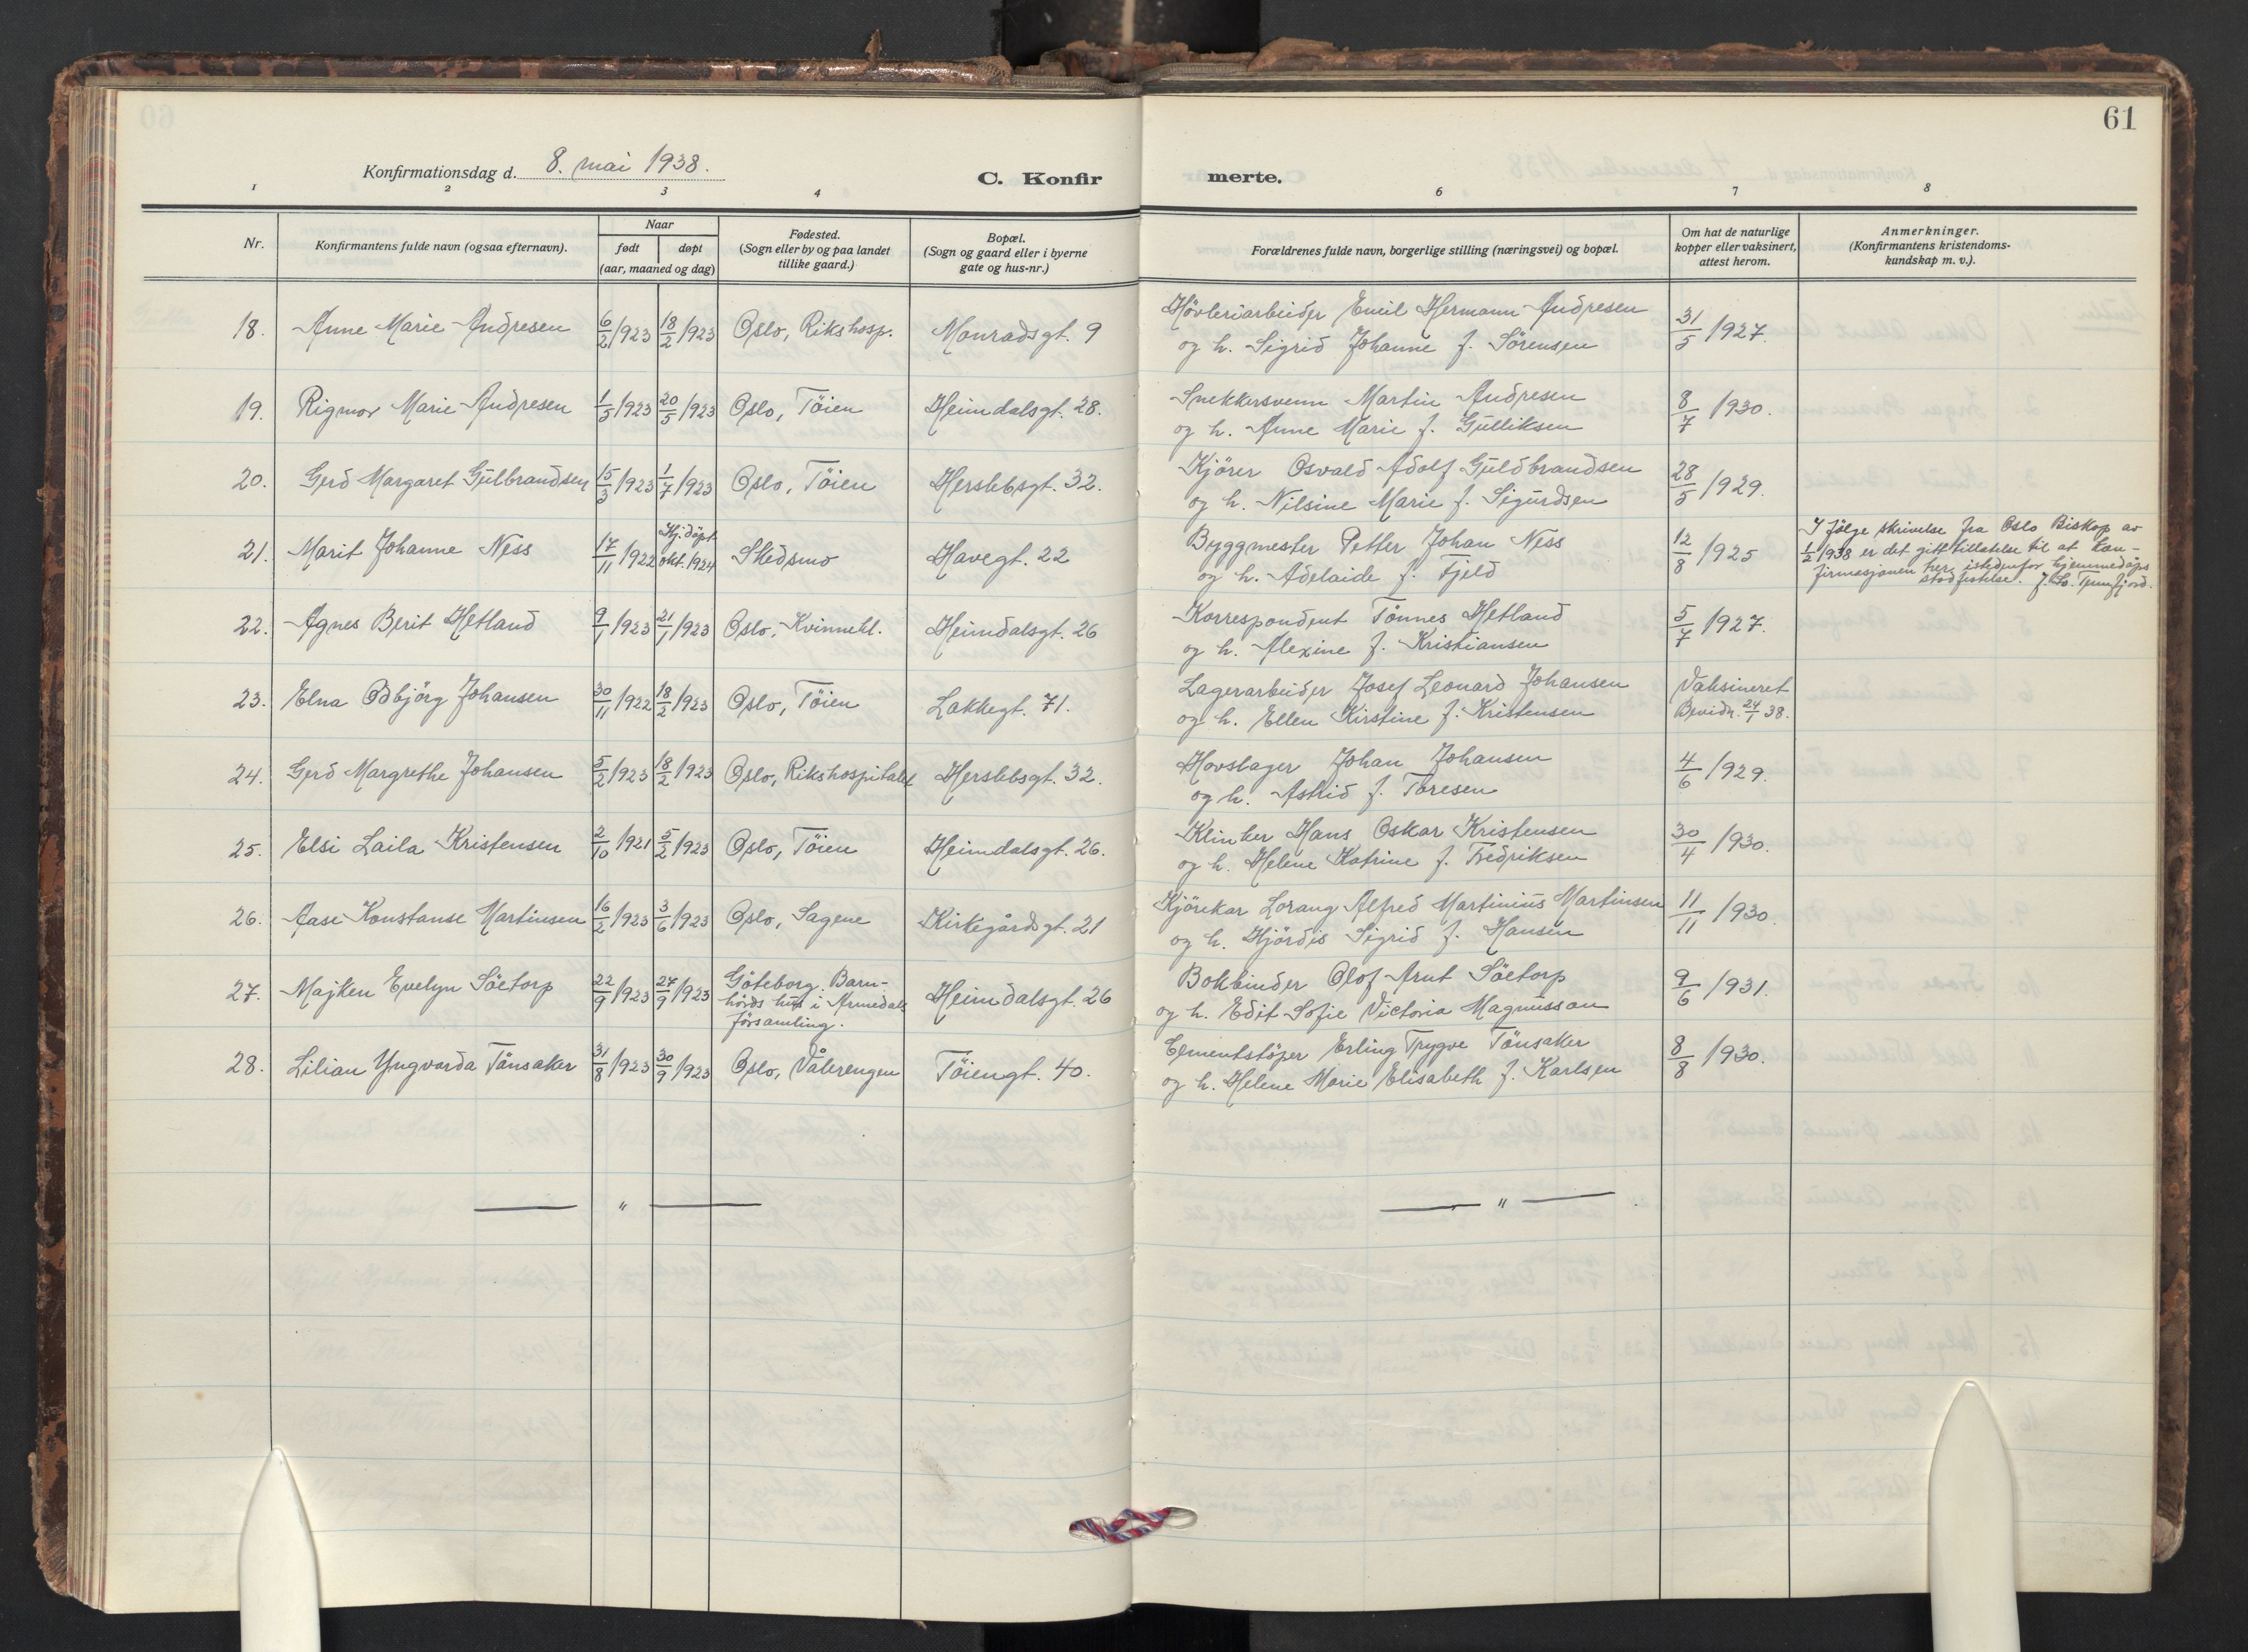 61
Konfirmationsdag d. 8. mai 1938.
C. Konfirmerte.
1 2 3 4 6 7 8
Nr.
Konfirmantens fulde navn (ogsaa efternavn).
Naar
født døpt
(aar, maaned og dag)
Fødested.
(Sogn eller by og paa landet
tillike gaard.)
Bopæl.
(Sogn og gaard eller i byerne
gate og hus-nr.)
Forældrenes fulde navn, borgerlige stilling (næringsvei) og bopæl.
Om hat de naturlige
kopper eller vaksinert,
attest herom.
Anmerkninger.
(Konfirmantens kristendoms-
kundskap m. v.).
18. Anne Marie Andresen 6/2 1923 18/2 1923 Oslo, Rikshosp. Monradsgt. 9 Høvleriarbeider Emil Hermann Andresen 31/5 1927.
og h. Sigrid Johanne f. Sörensen
19. Rigmor Marie Andresen 1/5 1923 20/5 1923 Oslo, Töien Heimdalsgt. 28. Snekkersvenn Martin Andresen 8/7 1930.
og h. Anne Marie f. Gulliksen
20. Gerd Margaret Gulbrandsen 15/3 1923 1/7 1923 Oslo, Töien Herslebsgt. 32. Kjörer Osvald Adolf Guldbrandsen 28/5 1929.
og h. Nilsine Marie f. Sigurdsen
21. Marit Johanne Ness 17/11 1922 Hj.döpt okt. 1924 Skedsmo Havegt. 22 Byggmester Petter Johan Ness 12/8 1925
og h. Adelaide f. Fjeld
I fölge skrivelse fra Oslo Biskop av
1/2 1938 er det gitt tillatelse til at kon-
firmasjonen her, istedenfor hjemmedåps
stadfestelse.
22. Agnes Berit Hetland 9/1 1923 21/1 1923 Oslo, Kvinnekl. Heimdalsgt. 26 Korrespondent Tönnes Hetland 5/7 1927.
og h. Alexine f. Kristiansen
23. Elna Odbjörg Johansen 30/11 1922 18/2 1923 Oslo, Töien Lakkegt. 71. Lagerarbeider Josef Leonard Johansen Vaksineret
og h. Ellen Kirstine f. Kristensen Bevidn. 24/1 38.
24. Gerd Margrethe Johansen 5/2 1923 18/2 1923 Oslo, Rikshospitalet Herslebsgt. 32. Hovslager Johan Johansen 4/6 1929.
og h. Astrid f. Toresen
25. Elsi Laila Kristensen 2/10 1921 5/2 1923 Oslo, Töien Heimdalsgt. 26. Klinker Hans Oskar Kristensen 30/4 1930.
og h. Helene Katrine f. Fredriksen
26. Aase Konstanse Martinsen 16/2 1923 3/6 1923 Oslo, Sagene Kirkegårdsgt. 21 Kjörekar Lorang Alfred Martinius Martinsen 11/11 1930.
og h. Hjördis Sigrid f. Hansen
27. Majken Evelyn Söetorp 22/9 1923 27/9 1923 Göteborg. Barn-
hörds hus i Annedals
församling. Heimdalsgt. 26 Bokbinder Olof Arnt Söetorp 9/6 1931.
og h. Edit Sofie Victoria Magnusson
28. Lilian Yngvarda Tånsaker 31/8 1923 30/9 1923 Oslo, Vålerengen Töiengt. 40. Cementstöper Erling Trygve Tönsaker 8/8 1930.
og h. Helene Marie Elisabeth f. Karlsen
— " — — " —